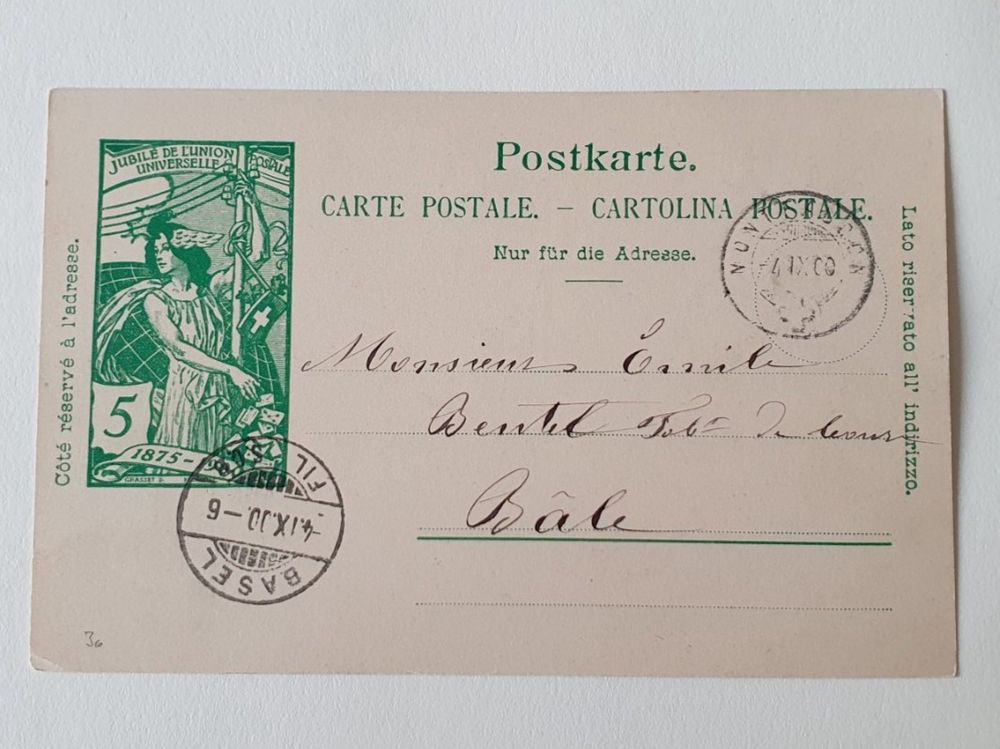 JUBILÉ DE L'UNION
UNIVERSELLE POSTALE
5
1875-
GRASSET D.
Côté réservé à l'adresse.
Postkarte.
CARTE POSTALE. – CARTOLINA POSTALE.
Nur für die Adresse.
Lato riservato all' indirizzo.
4 IX 00
Monsieur Emile
Bentel Fabt de
Bâle
BASEL
-4.IX.00.-6
FIL.
36